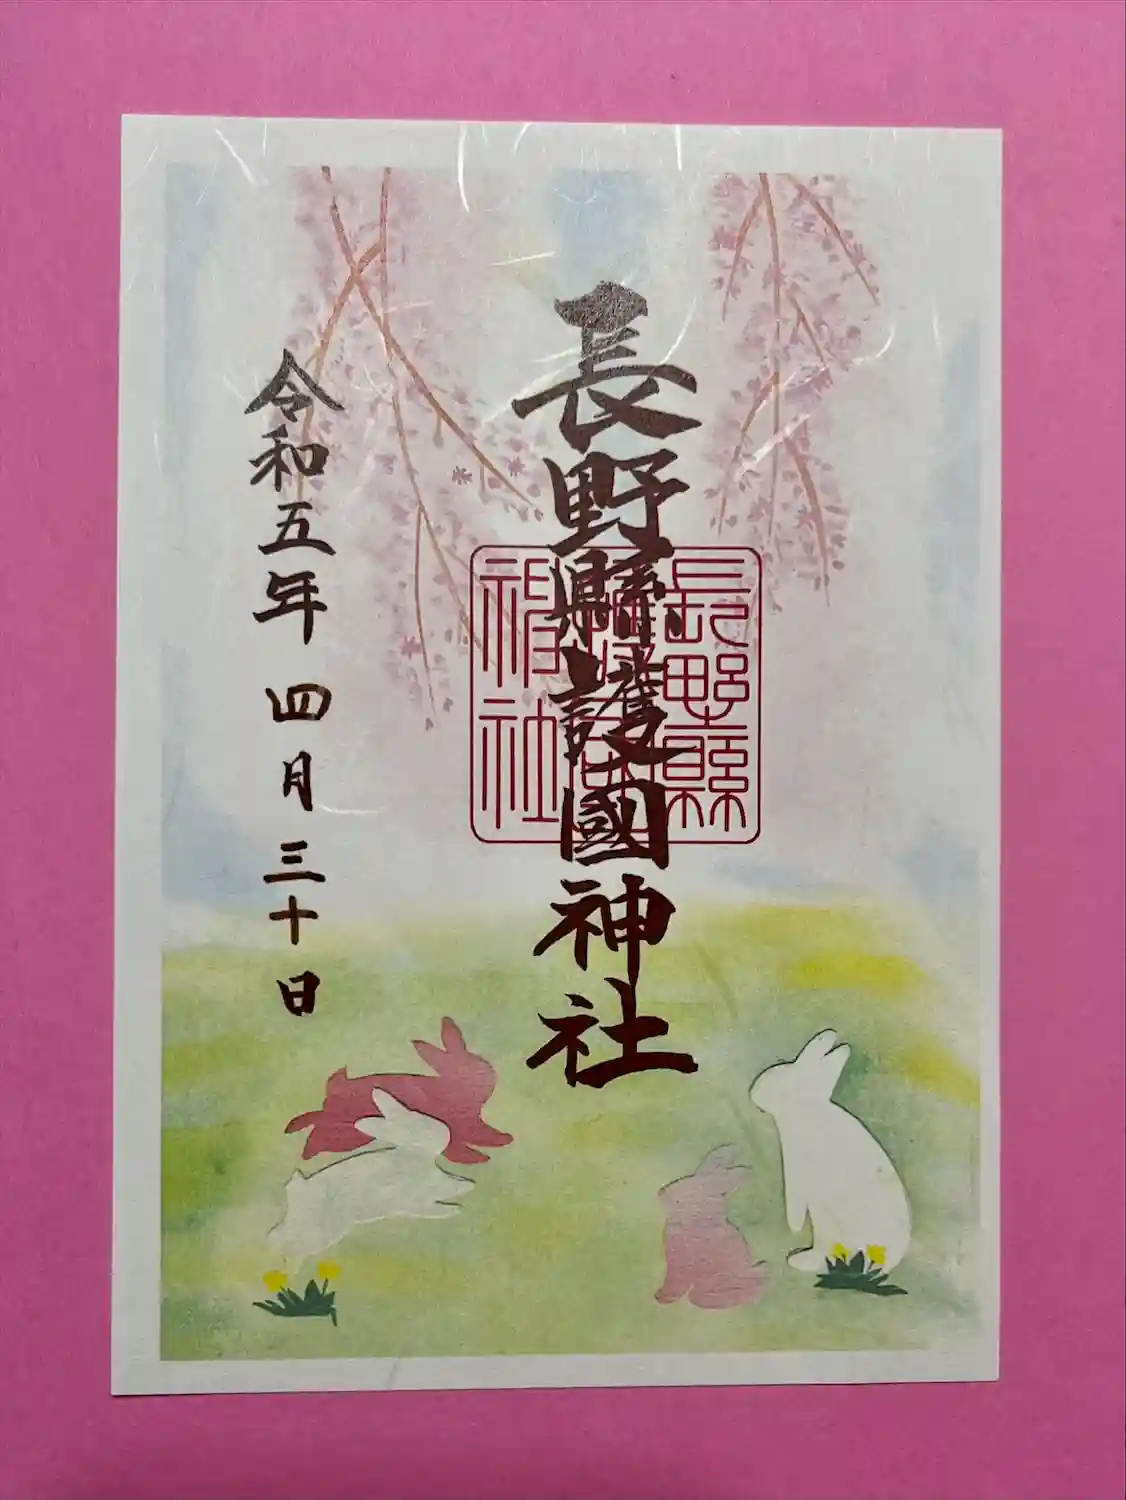 長野縣護國神社
長野縣
護國
神社
令和五年 四月三十日